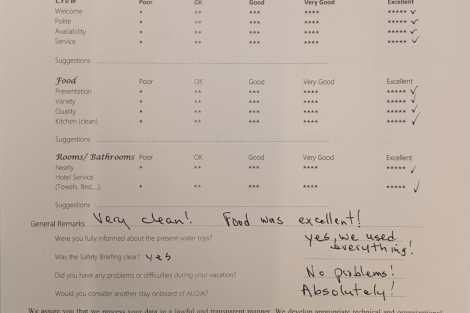 Crew Poor OK Good Very Good Excellent
Welcome * ** *** **** ***** ✓
Polite * ** *** **** ***** ✓
Availability * ** *** **** ***** ✓
Service * ** *** **** ***** ✓
Suggestions
Food Poor OK Good Very Good Excellent
Presentation * ** *** **** ***** ✓
Variety * ** *** **** ***** ✓
Quality * ** *** **** ***** ✓
Kitchen (clean) * ** *** **** ***** ✓
Suggestions
Rooms/ Bathrooms Poor OK Good Very Good Excellent
Neatly * ** *** **** ***** ✓
Hotel Service
(Towels, Bed,...) * ** *** **** ***** ✓
Suggestions
General Remarks Very clean! Food was excellent!
Were you fully informed about the present water toys? yes, we used
everything!
Was the Safety Briefing clear? yes
Did you have any problems or difficulties during your vacation? No problems!
Would you consider another stay onboard of Absolutely!
We assure you that we process your data in a lawful and transparent manner. We develop appropriate technical and organizational